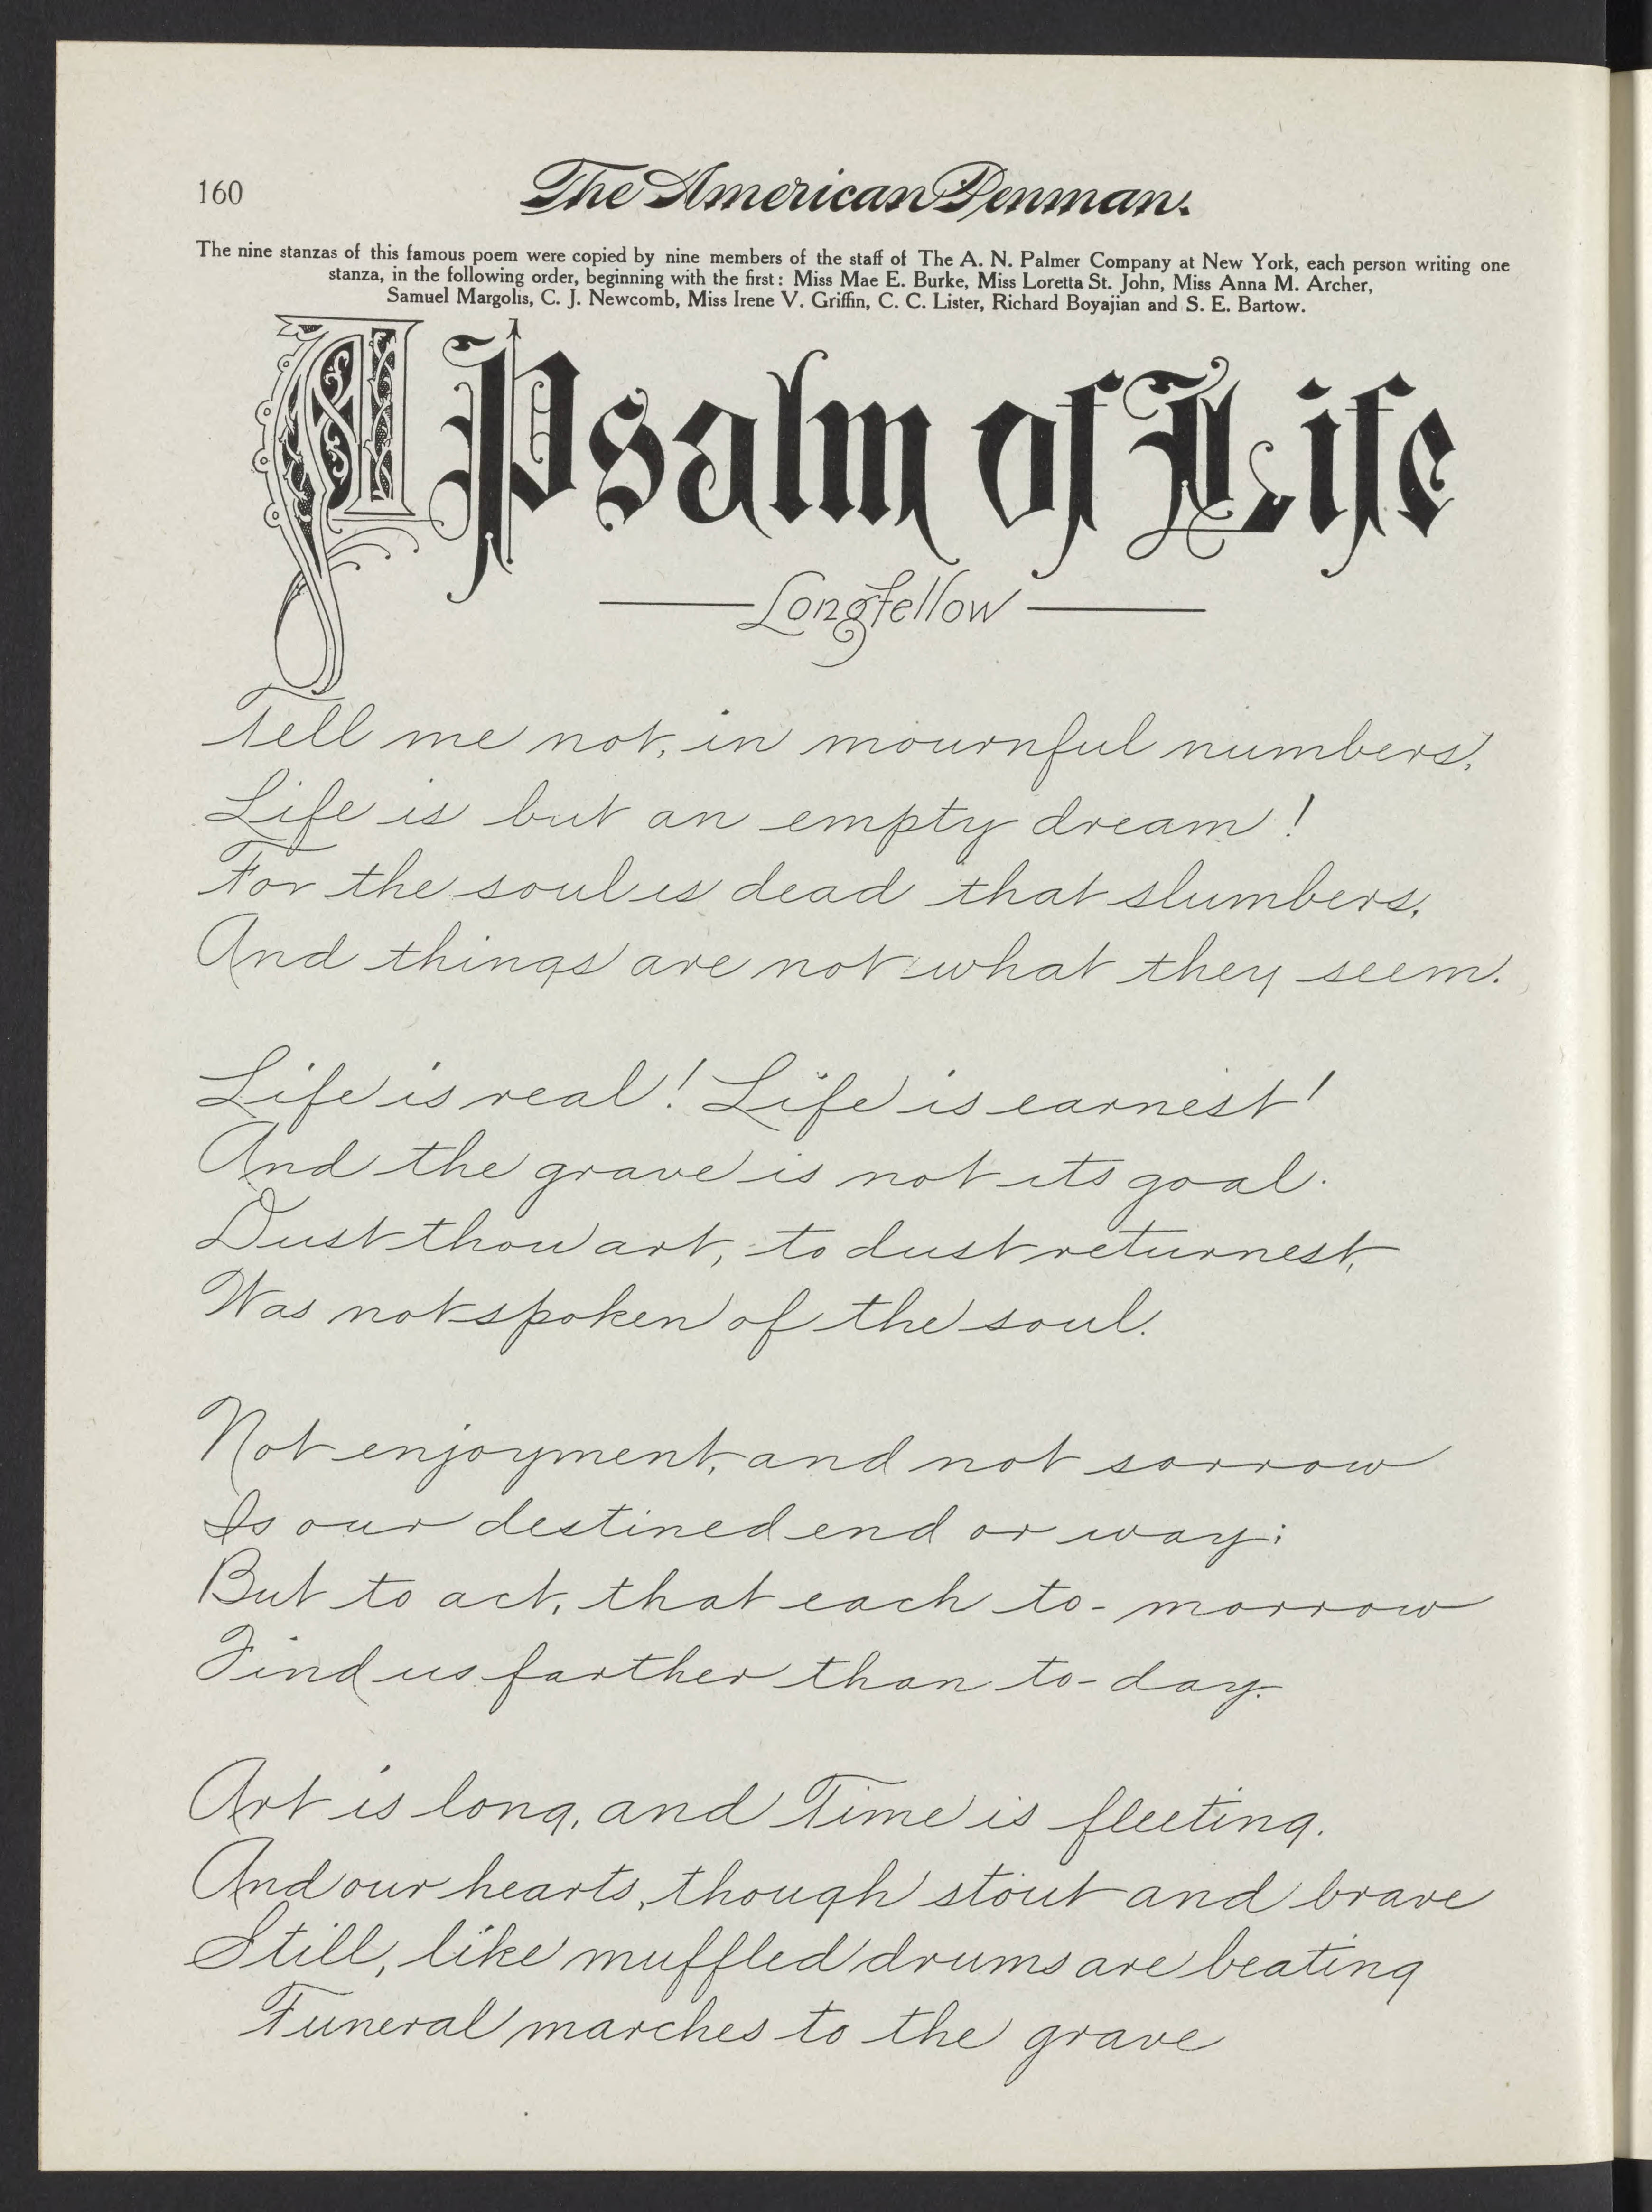 160
The American Penman.
The nine stanzas of this famous poem were copied by nine members of the staff of The A. N. Palmer Company at New York, each person writing one
stanza, in the following order, beginning with the first: Miss Mae E. Burke, Miss Loretta St. John, Miss Anna M. Archer,
Samuel Margolis, C. J. Newcomb, Miss Irene V. Griffin, C. C. Lister, Richard Boyajian and S. E. Bartow.
A Psalm of Life
Longfellow
Tell me not, in mournful numbers,
Life is but an empty dream!
For the soul is dead that slumbers,
And things are not what they seem.
Life is real! Life is earnest!
And the grave is not its goal.
Dust thou art, to dust returnest,
Was not spoken of the soul.
Not enjoyment, and not sorrow
Is our destined end or way;
But to act, that each to-morrow
Find us farther than to-day.
Art is long, and Time is fleeting.
And our hearts, though stout and brave
Still, like muffled drums are beating
Funeral marches to the grave